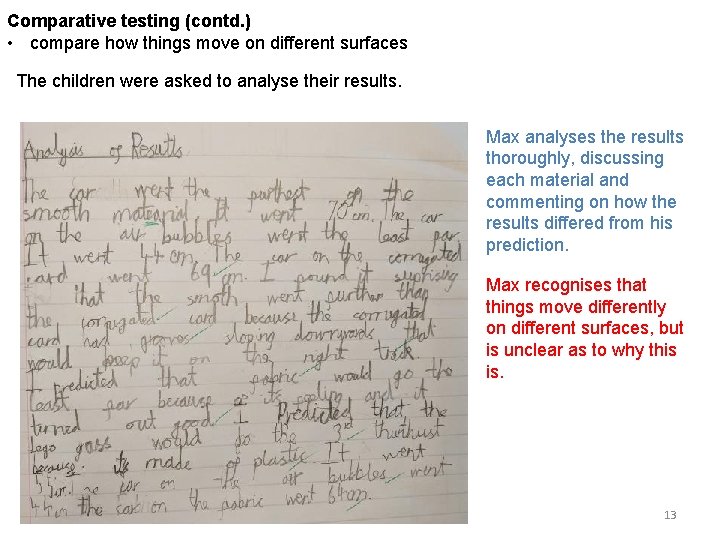 Comparative testing (contd.)
• compare how things move on different surfaces
The children were asked to analyse their results.
Analysis of Results
The car went the furthest on the
smooth material. It went 70cm. The car
on the air bubbles went the least far
It went 44cm. The car on the corrugated
card went 69cm. I found it suprising
that the smoth went further than
the corrugated card because the corrugated
card had grooves sloping downwards that
would keep it on the right track.
I Predicted that fabric would go the
least far because its and it
turned out good I Predicted that the
lego would do the 3rd
because its made of plastic It went
car on the air bubbles went
44cm the car on the fabric went 64cm.
Max analyses the results
thoroughly, discussing
each material and
commenting on how the
results differed from his
prediction.
Max recognises that
things move differently
on different surfaces, but
is unclear as to why this
is.
13